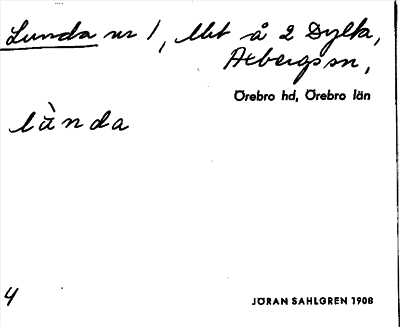 Lunda nr 1, Utt å 2 Dylta,
Axbergs sn,
Örebro hd, Örebro län
lùnda
4
JÖRAN SAHLGREN 1908